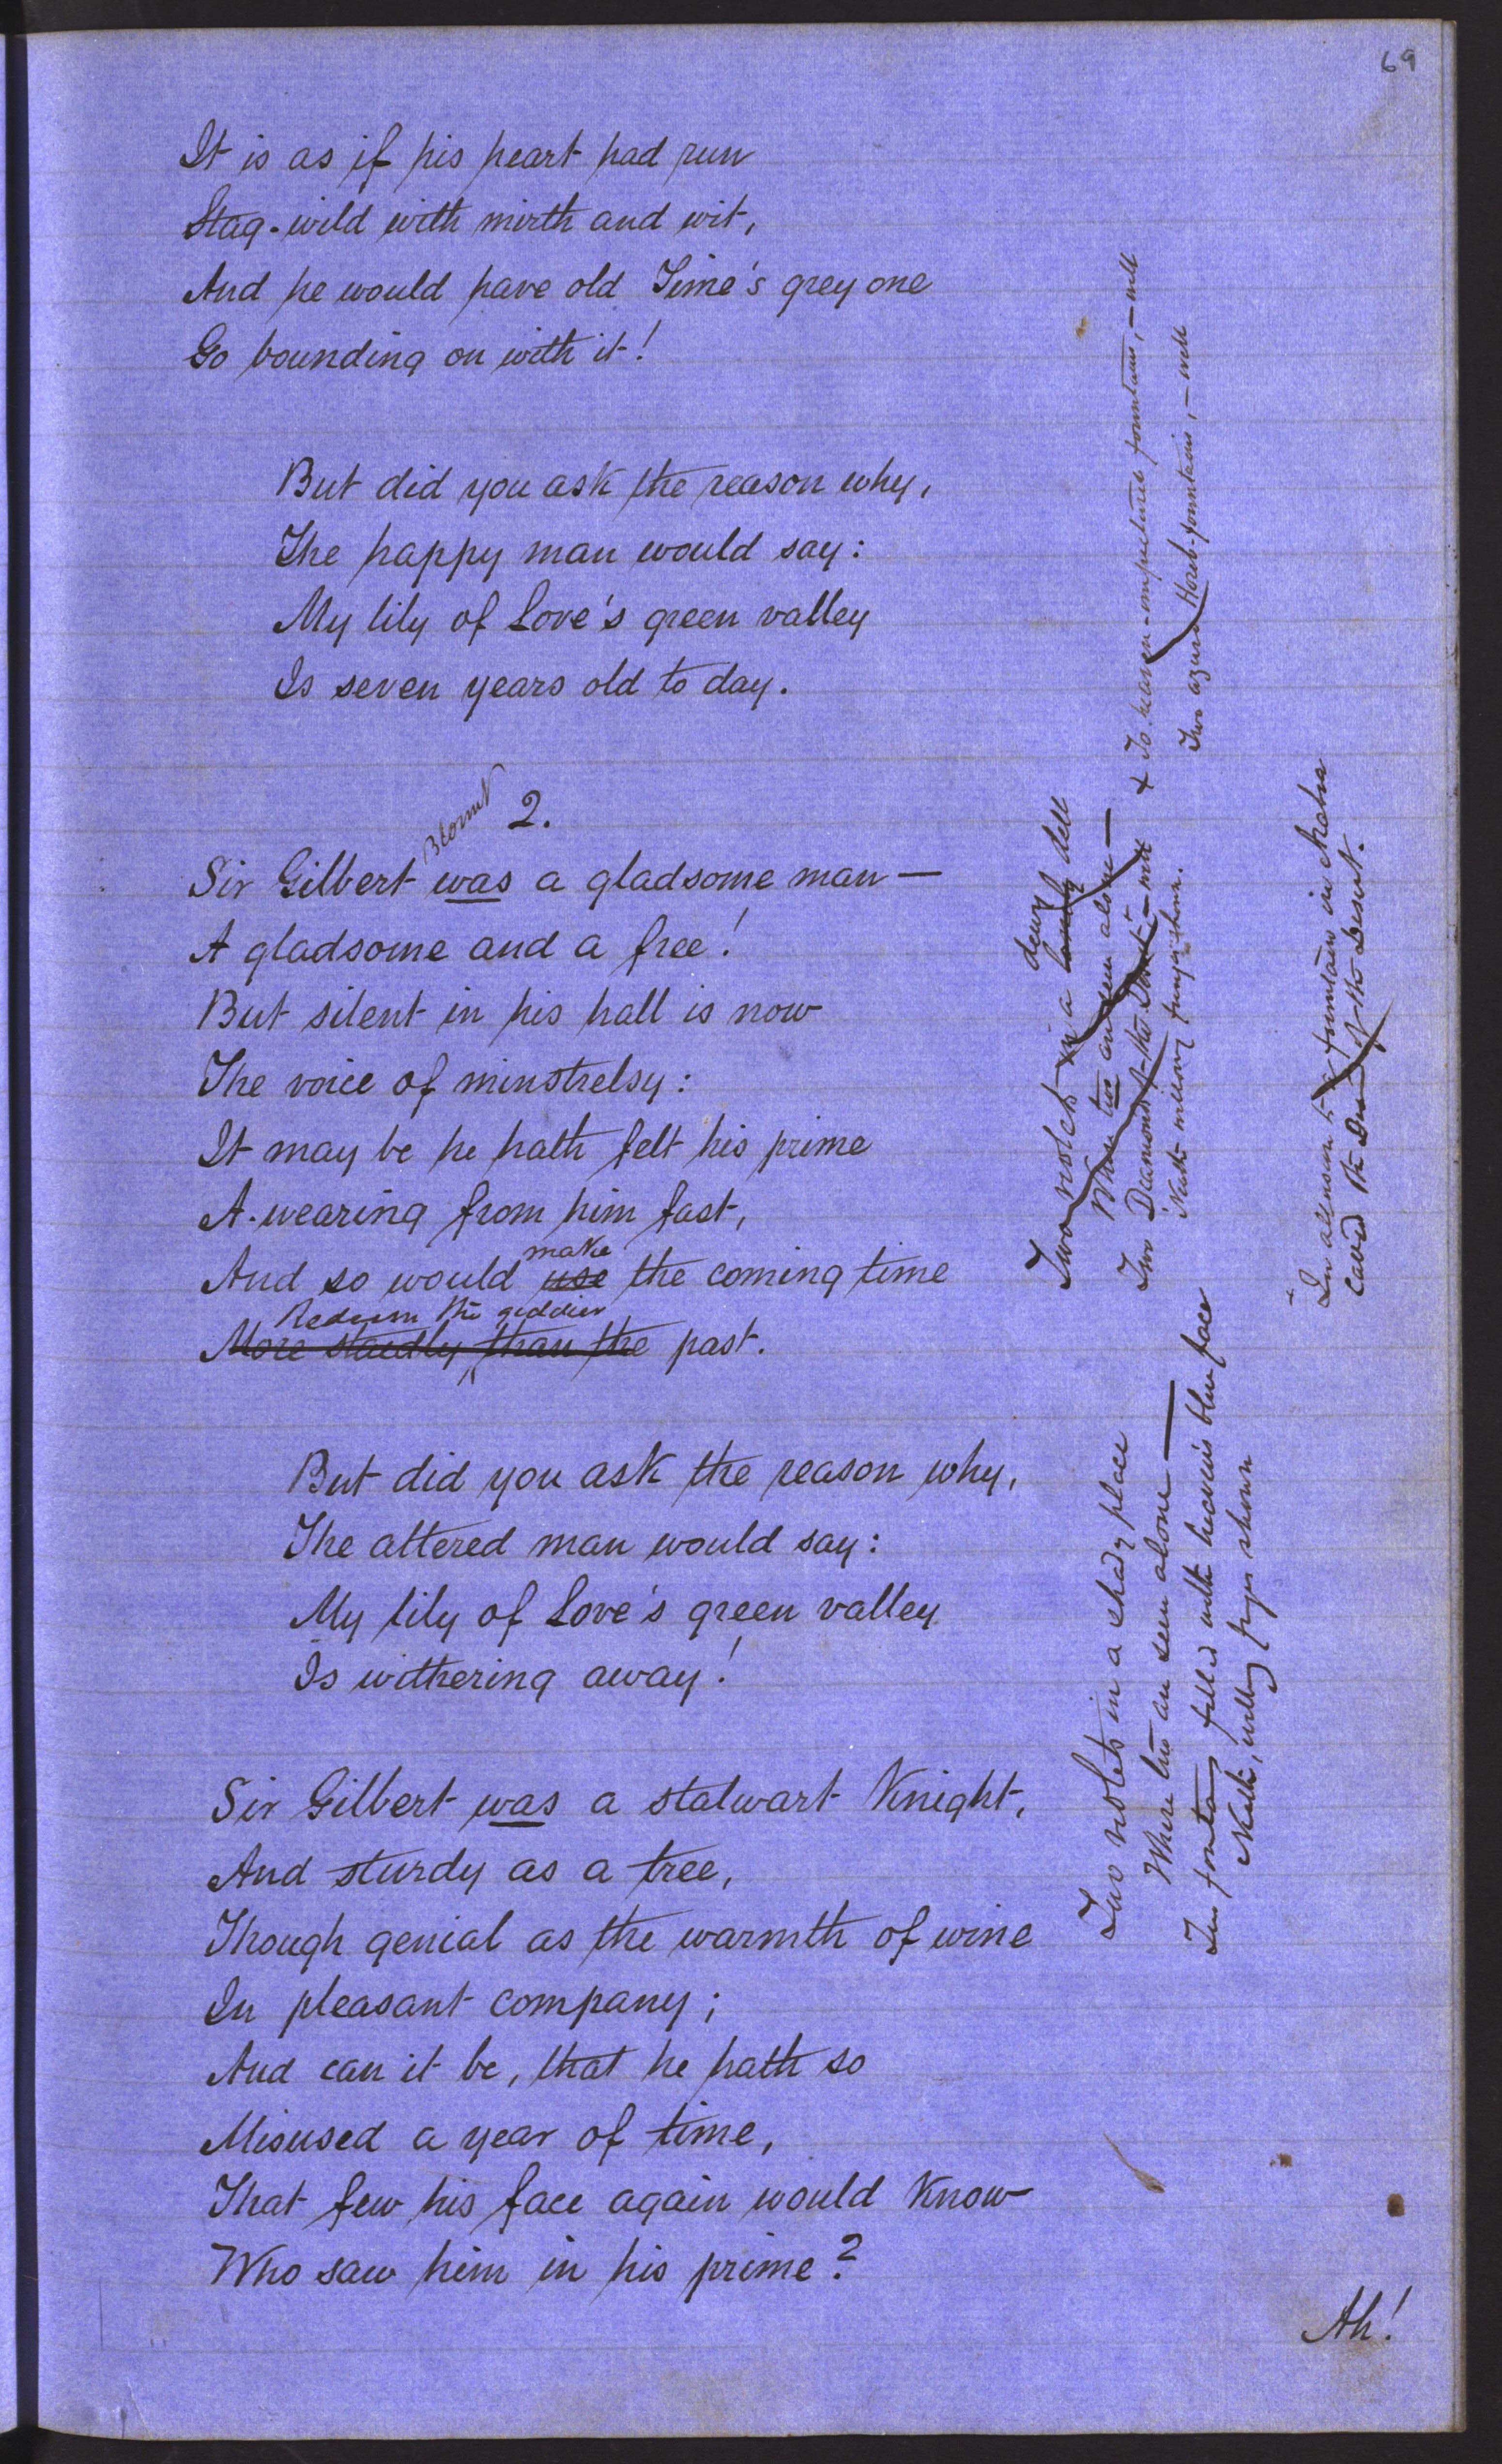 69
It is as if his heart had run
Stag-wild with mirth and wit,
And he would have old Time's grey one
Go bounding on with it!
But did you ask the reason why,
The happy man would say:
My lily of Love's green valley
Is seven years old to day.
2.
Blount
Sir Gilbert was a gladsome man —
A gladsome and a free!
But silent in his hall is now
The voice of minstrelsy:
It may be he hath felt his prime
A-wearing from him fast,
make
And so would use the coming time
Redeem the giddier
More staedly than the past.
But did you ask the reason why,
The altered man would say:
My lily of Love's green valley
Is withering away!
Sir Gilbert was a stalwart Knight,
And sturdy as a tree,
Though genial as the warmth of wine
In pleasant company;
And can it be, that he hath so
Misused a year of time,
That few his face again would know
Who saw him in his prime?
Ah!
Two violets in a lonely dell
dewy
When two are seen alone —
Two Diamonds of the Desert — well
'Neath willowy fringes shewn.
+ To heaven-impictured fountains, — well
Two azure Horeb-fountains, — well
In allusion to a fountain in Arabia
called the Diamond of the Desert.
Two violets in a shady place
Where two are seen alone —
Two fontans filled with heaven's blue face
'Neath willowy fringes shown